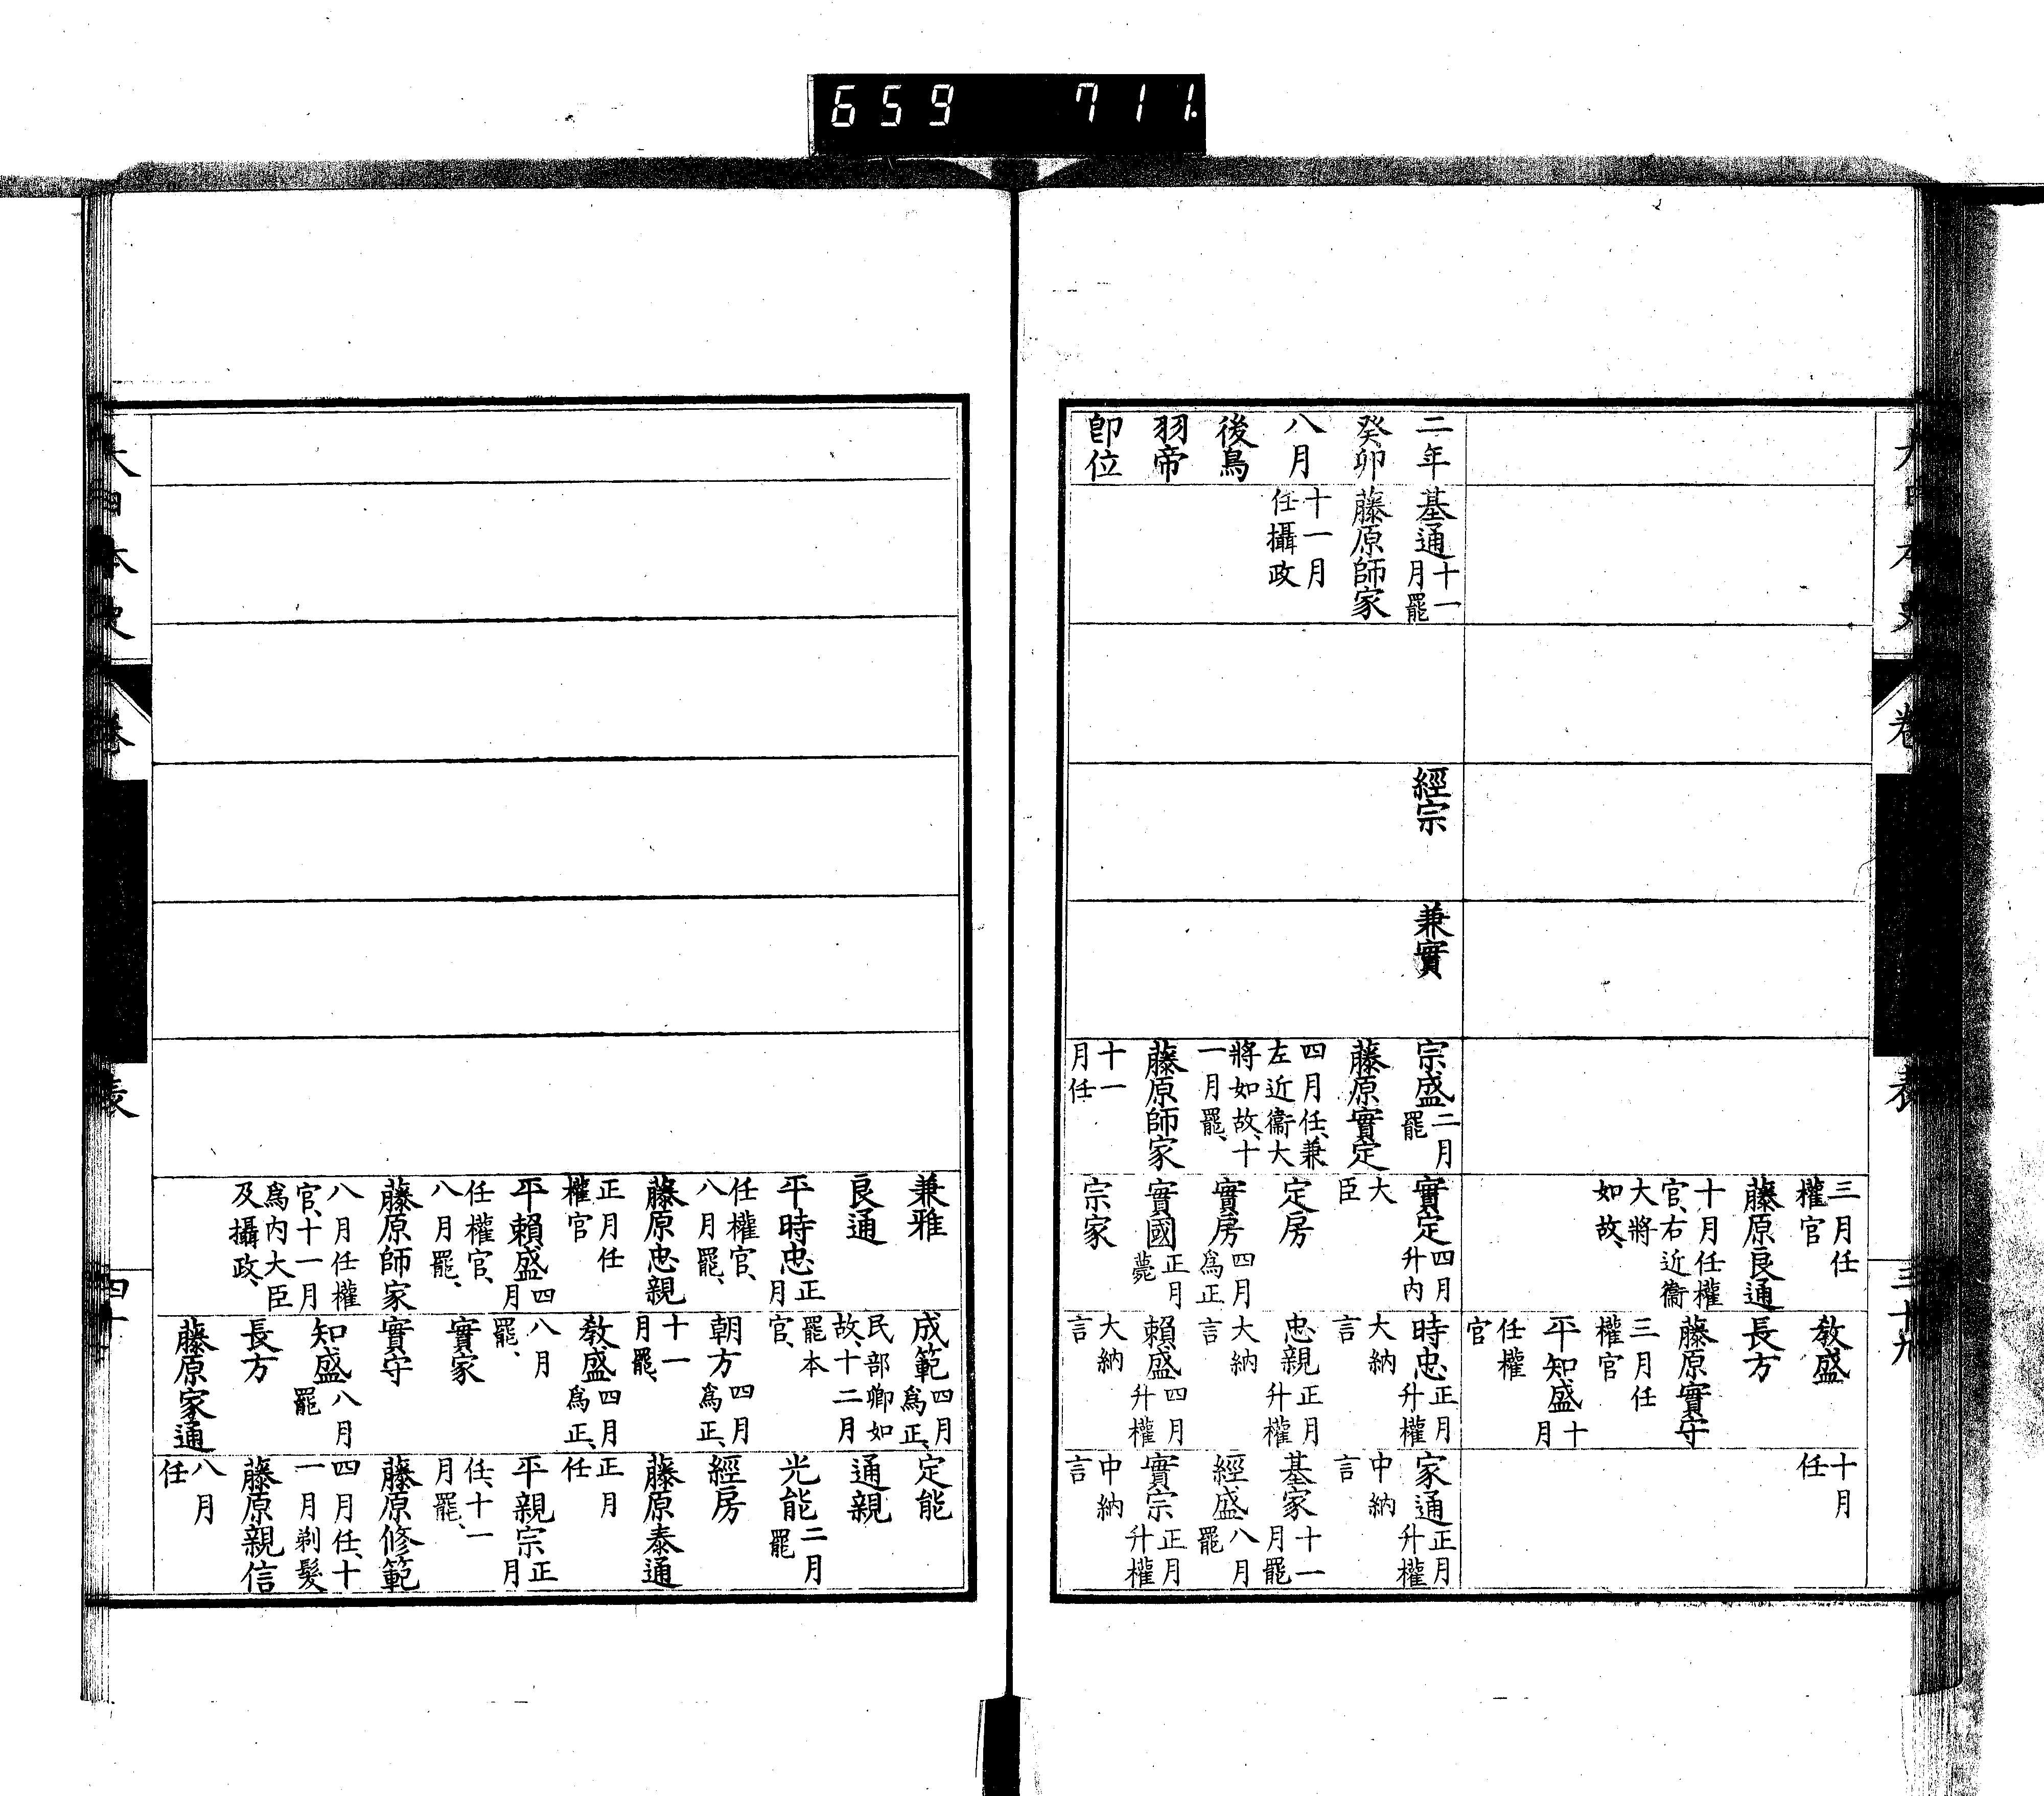 659 711
大日本史
卷
表
三十九
三月任
權官
藤原良通
十月任權
官、右近衞
大將
如故、
敎盛
長方
藤原實守
三月任
權官
平知盛十
月
任權
官
十月
任
二年
癸卯
八月
後鳥
羽帝
卽位
基通十一
月罷
藤原師家
十一月
任攝政
經宗
兼實
宗盛二月
罷
藤原實定
四月任、兼
左近衞大
將如故、十
一月罷、
藤原師家
十一
月任
實定四月
升内
大
臣
定房
實房四月
爲正
實國正月
薨
宗家
時忠正月
升權
大納
言
忠親正月
升權
大納
言
賴盛四月
升權
大納
言
家通正月
升權
中納
言
基家十一
月罷
經盛八月
罷
實宗正月
升權
中納
言
兼雅
良通
平時忠正
月
任權官、
八月罷、
藤原忠親
正月任
權官
平賴盛四
月
任權官、
八月罷、
藤原師家
八月任權
官、十一月
爲内大臣
及攝政、
成範四月
爲正、
民部卿如
故、十二月
罷本
官、
朝方四月
爲正、
十一
月罷、
敎盛四月
爲正、
八月
罷、
實家
實守
知盛八月
罷
長方
藤原家通
定能
通親
光能二月
罷
經房
藤原泰通
正月
任
平親宗正
月
任、十一
月罷、
藤原修範
四月任、十
一月剃髮
藤原親信
八月
任
大日本史
卷
表
四十